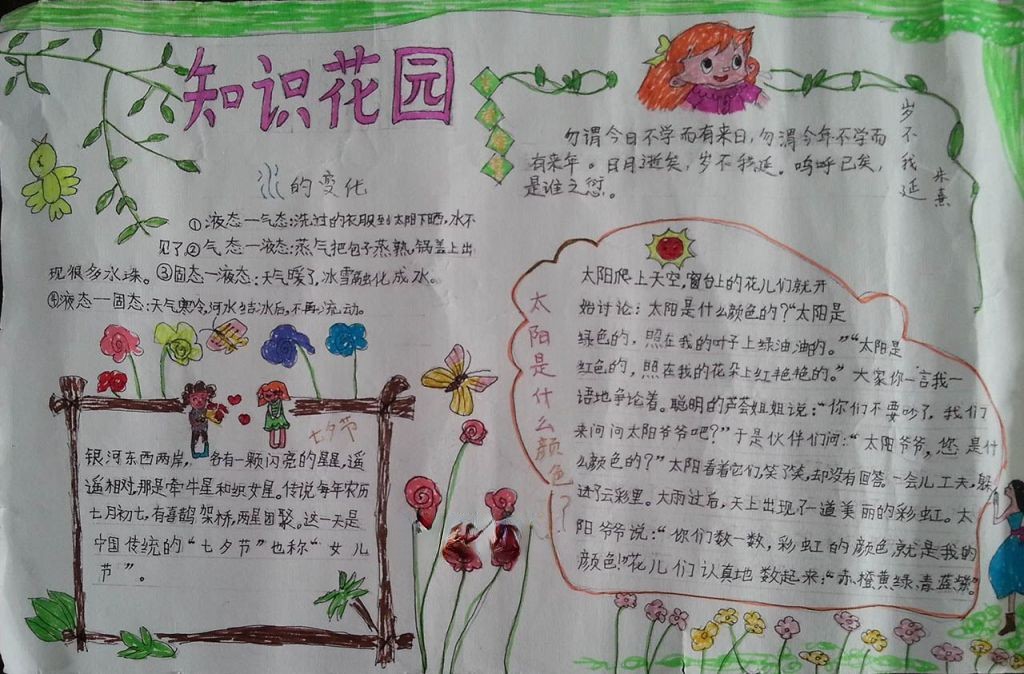 知识花园
水的变化
①液态—气态:洗过的衣服到太阳下晒,水不
见了②气态—液态:蒸气把包子蒸熟,锅盖上出
现很多水珠。③固态—液态:天气暖了,冰雪融化成水。
④液态—固态:天气寒冷,河水结冰后,不再流动。
七夕节
银河东西两岸,各有一颗闪亮的星星,遥
遥相对,那是牵牛星和织女星。传说每年农历
七月初七,有喜鹊架桥,两星团聚。这一天是
中国传统的“七夕节”也称“女儿
节”。
勿谓今日不学而有来日,勿谓今年不学而
有来年。日月逝矣,岁不我延。呜呼已矣,
是谁之愆。
岁不我延
朱熹
太阳是什么颜色?
太阳爬上天空,窗台上的花儿们就开
始讨论:太阳是什么颜色的?“太阳是
绿色的,照在我的叶子上绿油油的。”“太阳是
红色的,照在我的花朵上红艳艳的。”大家你一言我一
语地争论着。聪明的芦荟姐姐说:“你们不要吵了,我们
来问问太阳爷爷吧?”于是伙伴们问:“太阳爷爷,您是什
么颜色的?”太阳看着它们,笑了笑,却没有回答一会儿工夫,躲
进了云彩里。大雨过后,天上出现了一道美丽的彩虹。太
阳爷爷说:“你们数一数,彩虹的颜色就是我的
颜色!”花儿们认真地数起来:“赤橙黄绿青蓝紫”